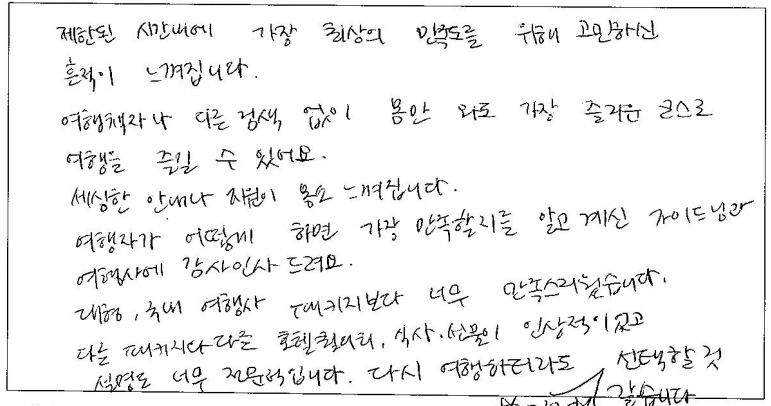 제한된 시간내에 가장 최상의 만족도를 위해 고민하신
흔적이 느껴집니다.
여행책자나 다른 검색 없이 몸만 와도 가장 즐거운 코스로
여행을 즐길 수 있어요.
세심한 안내나 지원이 몸소 느껴집니다.
여행자가 어떻게 하면 가장 만족할지를 알고 계신 가이드님과
여행사에 감사인사 드려요.
대형, 국내 여행사 패키지보다 너무 만족스러웠습니다.
다른 패키지와 다른 호텔퀄리티, 식사·선물이 인상적이었고
설명도 너무 전문적입니다. 다시 여행하더라도 선택할 것
같습니다